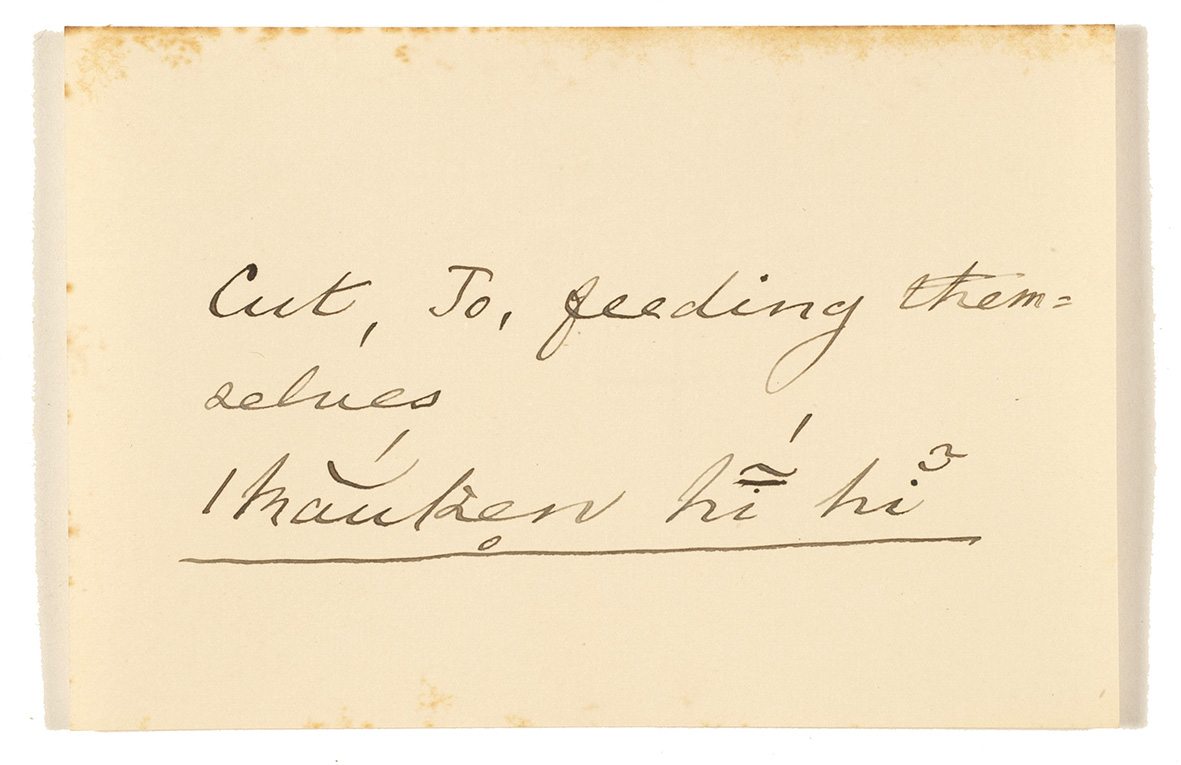 Cut, To, feeding them=
selves
|kắúk̥en hī̃́ hĭ̃